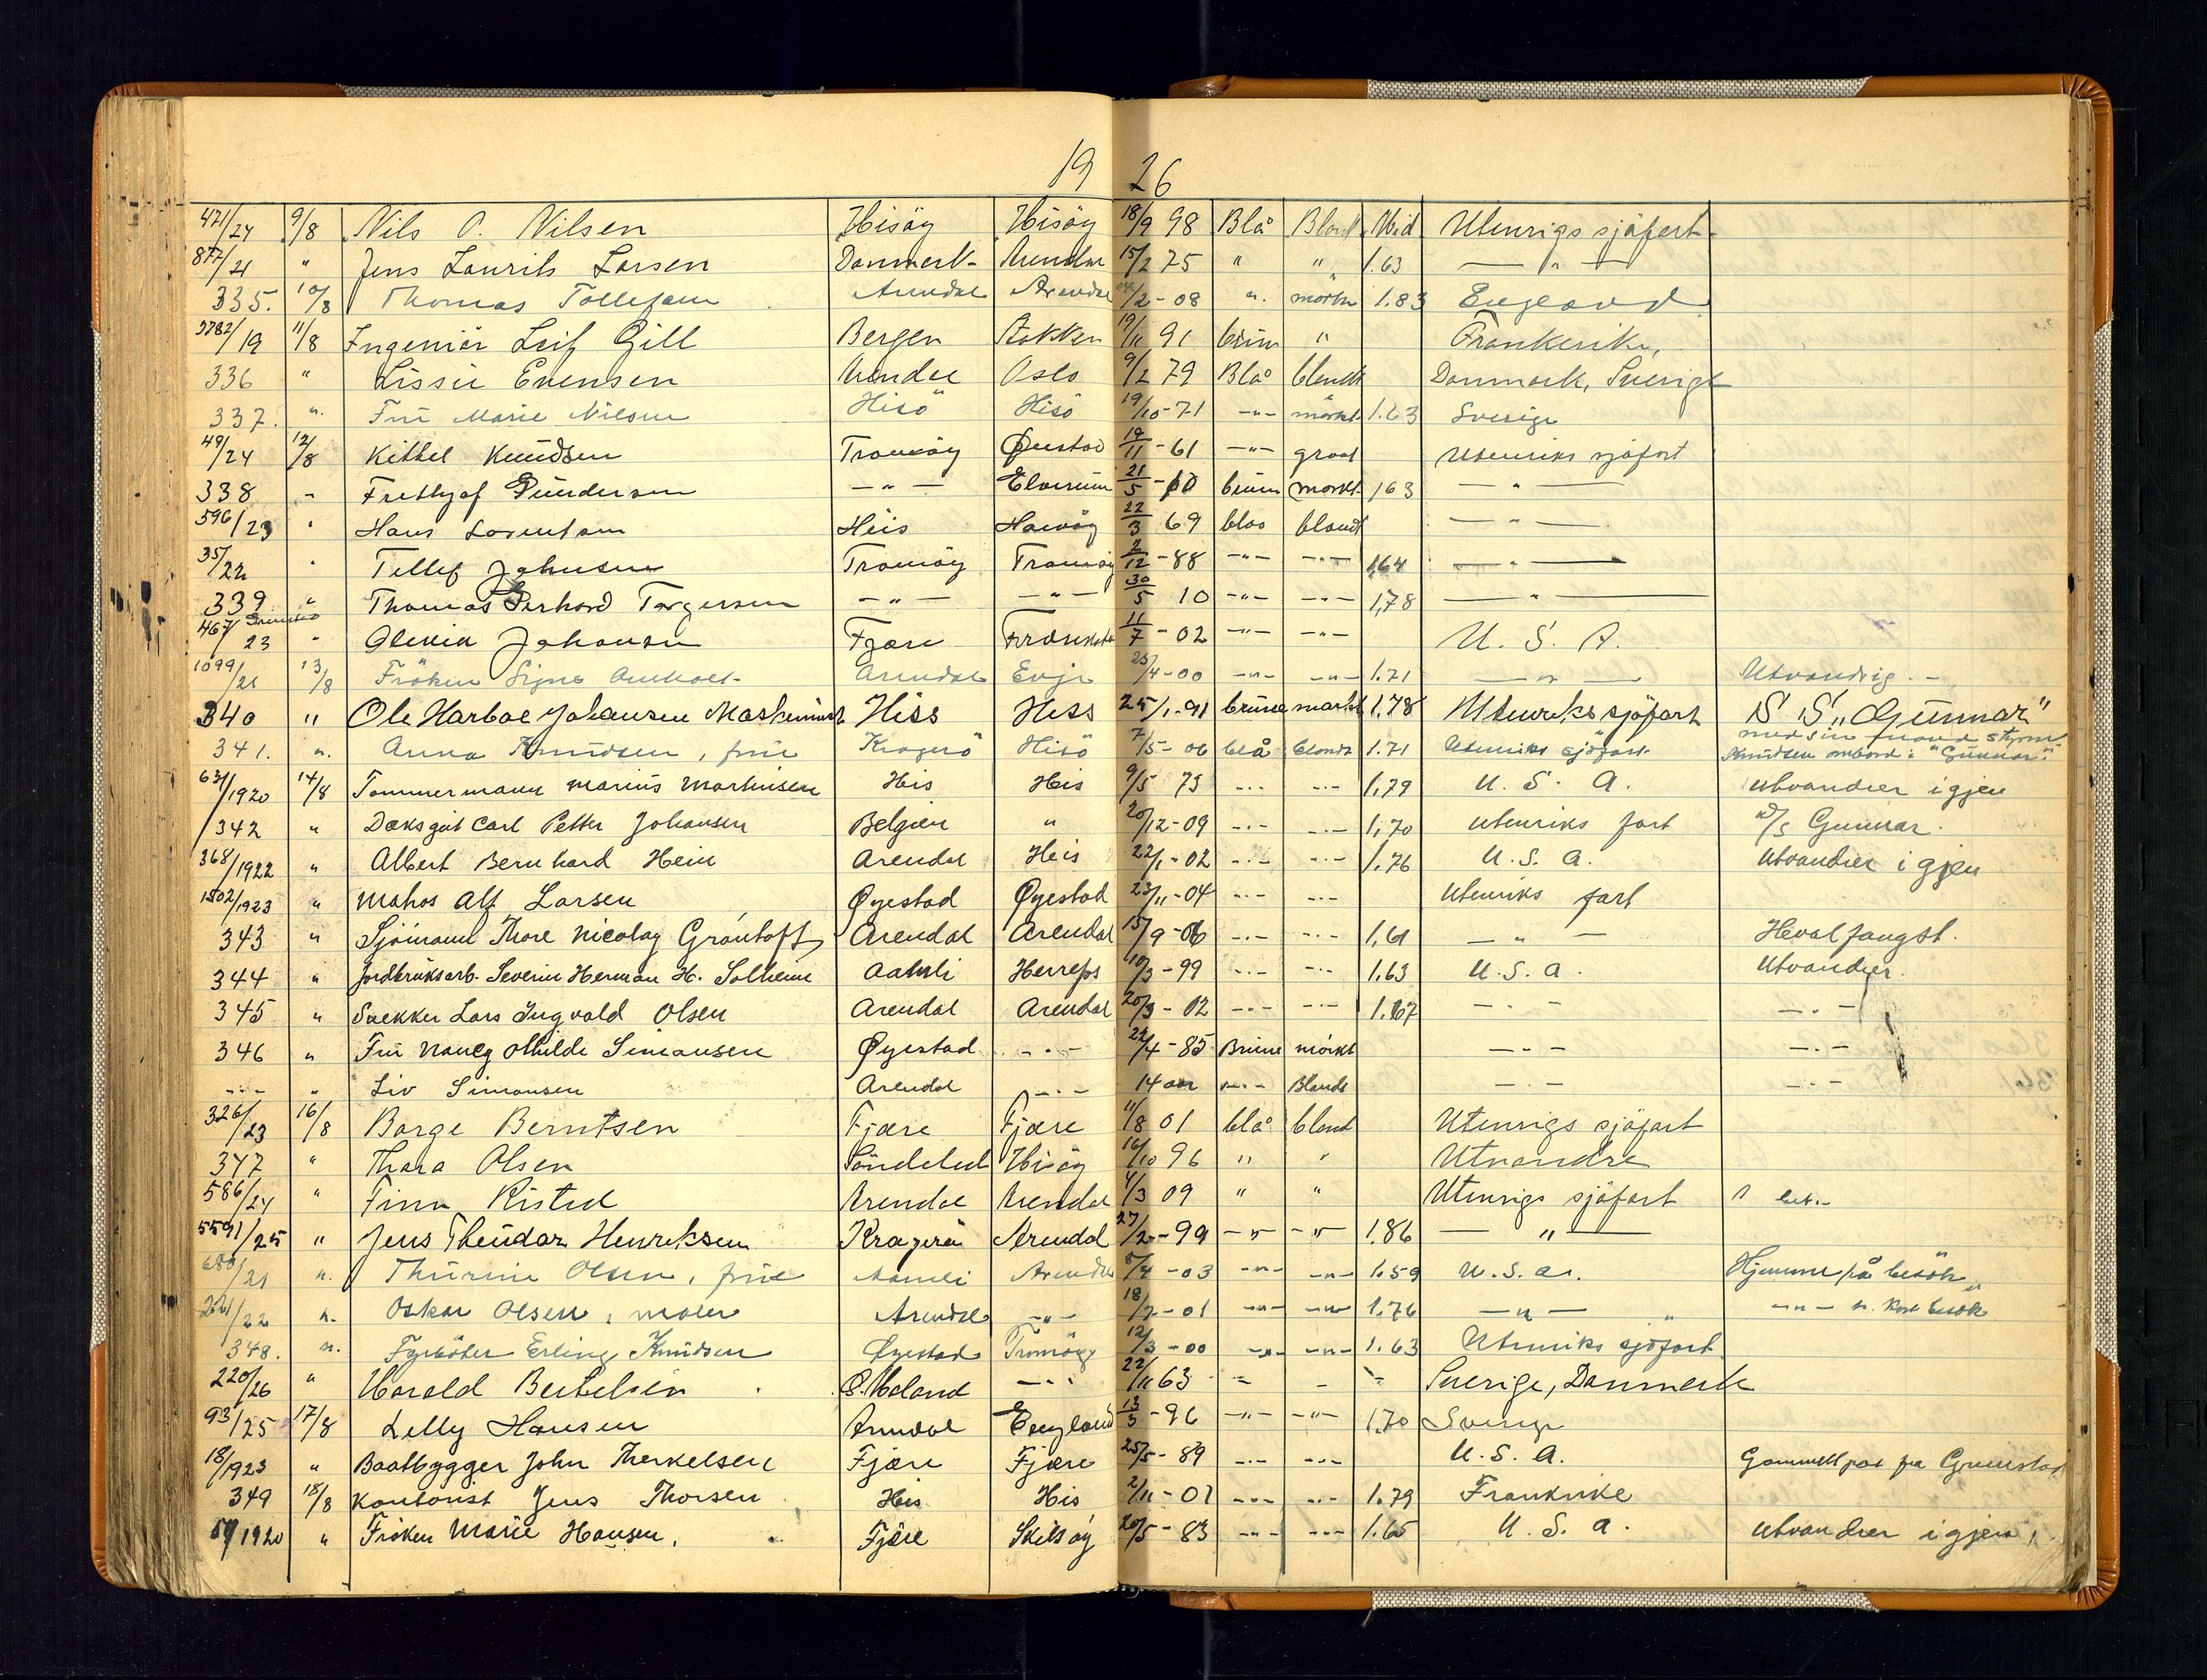 19 26
471/24 9/8 Nils O. Nilsen Hisöy Hisöy 18/9 98 Blå Blond Mid Utenrigs sjöfart
877/21 " Jens Laurits Larsen Danmark Arendal 15/2 75 " " 1.63 — " —
335. 10/8 Thomas Tollefsen Arendal Arendal /2-08 ". mörk 1.83 England
3782/19 11/8 Ingeniör Leif Gill Bergen Stokken 19/11 91 brun " Frankerike,
336 " Lissie Evensen Arendal Oslo 9/2 79 Blå blondt Danmark, Sverige
337. ". Fru Marie Nilsen Hisö Hisö 19/10-71 -"- mörkt 1.63 Sverige
49/24 12/8 Kittel Knudsen Tromöy Öiestad /11-61 -"- graat Utenriks sjöfart
338 " Frithjof Gundersen — " — Elverum 21/5-10 brun mörkt 163 — " —
596/23 " Hans Lorentsen Hiis Havöy 22/3 69 blaa blondt — " —
35/22 " Tellef Johnsen Tromöy Tromöy 2/12-88 -"- -"- 1,64 — " —
339 " Thomas Gerhard Torgersen — " — — " — 30/5 10 -"- -"- 1,78 — " —
467/23 Grimstad " Olevia Johansen Fjære 11/7-02 -"- -"- U. S. A.
1099/21 13/8 Fröken Signe Arendal Evje 25/4-00 -"- -"- 1.71 — " — Utvandrig. -
340 " Ole Harboe Johansen Maskinist Hiss Hiss 25/1-91 brune mørkt 1.78 Utenriks sjöfart S S „Gunnar"
341. ". Anna Knudsen, frue Kragerö Hisö 7/5-06 blå blondt 1.71 Utenriks sjöfart med sin mand styrm. Knudsen ombord i "Gunnar".
631/1920 14/8 Tømmermann Marius Martinsen His His 9/5 73 -"- -"- 1,79 U. S. A. utvandrer igjen
342 " Dæksgut Carl Petter Johansen Belgien " 20/12-09 -"- -"- 1,70 utenriks fart D/S Gunnar.
368/1922 " Albert Bernhard Hein Arendal His 22/1-02 -"- -"- 1.76 U. S. A. Utvandrer igjen
1502/1923 " Matros Alf Larsen Øyestad Øyestad 23/11-04 -"- -"- Utenriks fart
343 " Sjömann Thore Nicolay Gröntoft Arendal Arendal 15/9-06 -"- -"- 1,61 — " — Hvalfangst.
344 " Jordbruksarb. Severin Herman H. Solheim Aamli Herrefos 10/3-99 -"- -"- 1.63 U. S. A. Utvandrer.
345 " Snekker Lars Ingvald Olsen Arendal Arendal 20/9-02 -"- -"- 1.67 -"- -"-
346 " Fru Nancy Othilde Simonsen Øyestad -"- 24/4-85 Brune mörkt -"- -"-
-"- " Liv Simonsen Arendal -"- 14 aar -"- Blonde -"- -"-
326/23 16/8 Borge Berntsen Fjære Fjære 11/8 01 blå blond Utenrigs sjöfart
347 " Thora Olsen Söndeled Hisöy 16/10 96 " " Utvandre
586/24 " Finn Risted Arendal Arendal 4/3 09 " " Utenrigs sjöfart
5591/25 " Jens Theudor Henriksen Kragerö Arendal 27/2-99 -"- -"- 1,86 — " —
/21 ". Thurine Olsen, frue Aamli Arendal 5/4-03 -"- -"- 1.59 U. S. A. Hjemme på besök
/22 ". Oskar Olsen, maler Arendal -"- 18/7-01 -"- -"- 1.76 — " — -"- besök
348. ". Fyrböter Erling Knudsen Øyestad Tromöy 12/3-00 -"- -"- 1.63 Utenriks sjöfart
220/26 " Harald Bertelsen Ö. Moland -"- 22/11 63 - - Sverige, Danmark
93/25 17/8 Lelly Hansen Arendal England 13/3-96 -"- -"- 1,70 Sverige
18/1923 " Baatbygger John Therkelsen Fjære Fjære 25/5-89 -"- -"- U. S. A. Gammelt pas fra Grimstad
349 18/8 Kontorist Jens Thorsen His His 2/11-01 -"- -"- 1.79 Frankrike
/1920 " Fröken Marie Hansen. Fjære Skilsöy 20/5-83 -"- -"- 1.65 U. S. A. utvandrer igjen